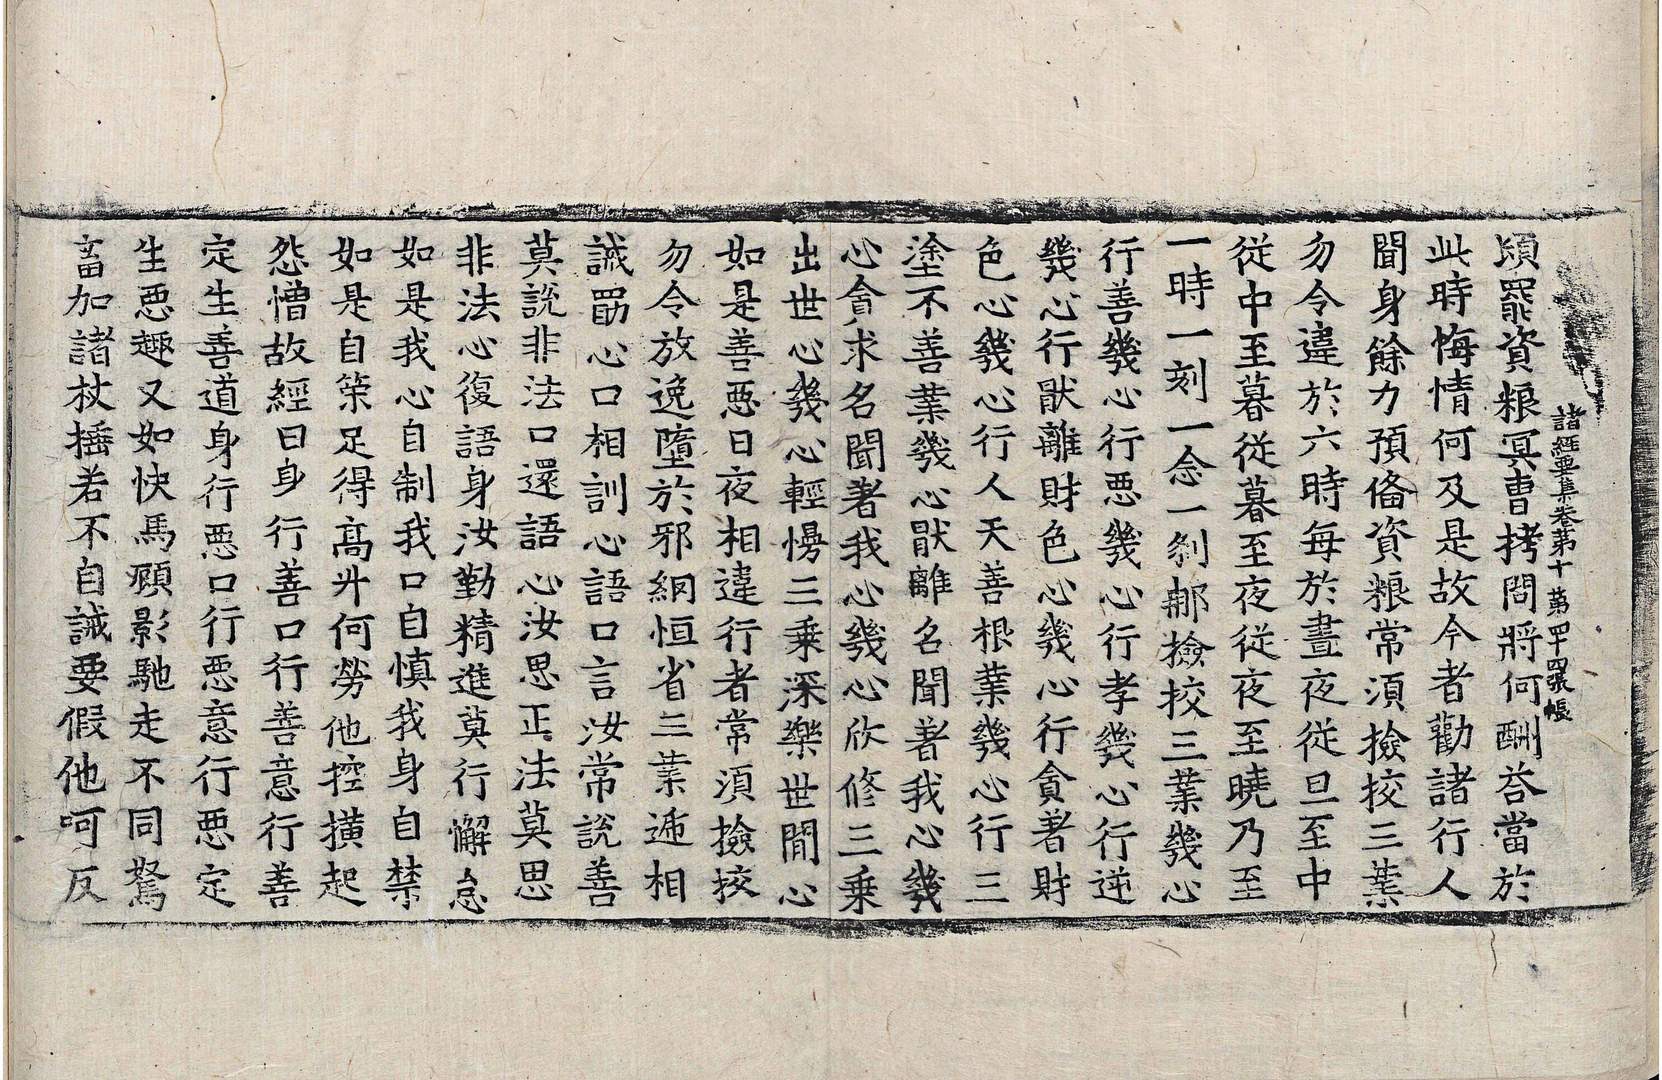 諸經要集卷第十 第四十四張 帳
頃罷資粮冥曹拷問將何酬荅當於
此時悔情何及是故今者勸諸行人
聞身餘力預俻資粮常湏撿挍三業
勿令違於六時每於晝夜從旦至中
從中至暮從暮至夜從夜至曉乃至
一時一刻一念一刹那撿挍三業幾心
行善幾心行惡幾心行孝幾心行逆
幾心行猒離財色心幾心行貪著財
色心幾心行人天善根業幾心行三
塗不善業幾心猒離名聞著我心幾
心貪求名聞著我心幾心欣修三乗
出世心幾心輕慢三乗深樂世間心
如是善惡日夜相違行者常湏撿挍
勿令放逸墮於邪網恒省三業遞相
誡勗心口相訓心語口言汝常說善
莫說非法口還語心汝思正法莫思
非法心復語身汝勤精進莫行懈怠
如是我心自制我口自慎我身自禁
如是自策足得高升何勞他控撗起
怨憎故經曰身行善口行善意行善
定生善道身行惡口行惡意行惡定
生惡趣又如快馬顧影馳走不同駑
畜加諸杖捶若不自誡要假他呵反